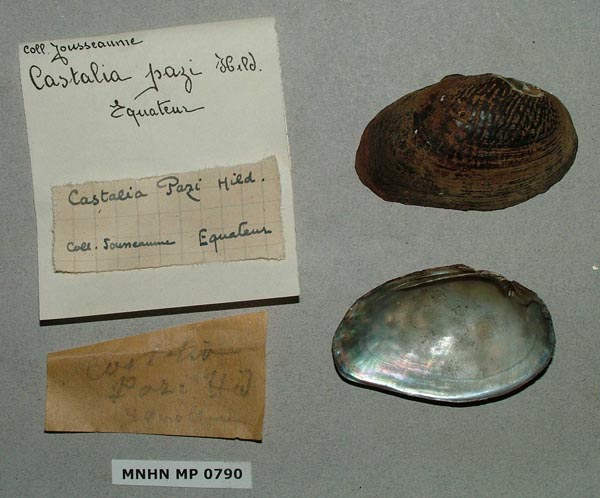 Coll. Jousseaume
Castalia pazi Hild.
Equateur
Castalia Pazi Hild.
Coll. Jousseaume Equateur
Pazi
MNHN MP 0790